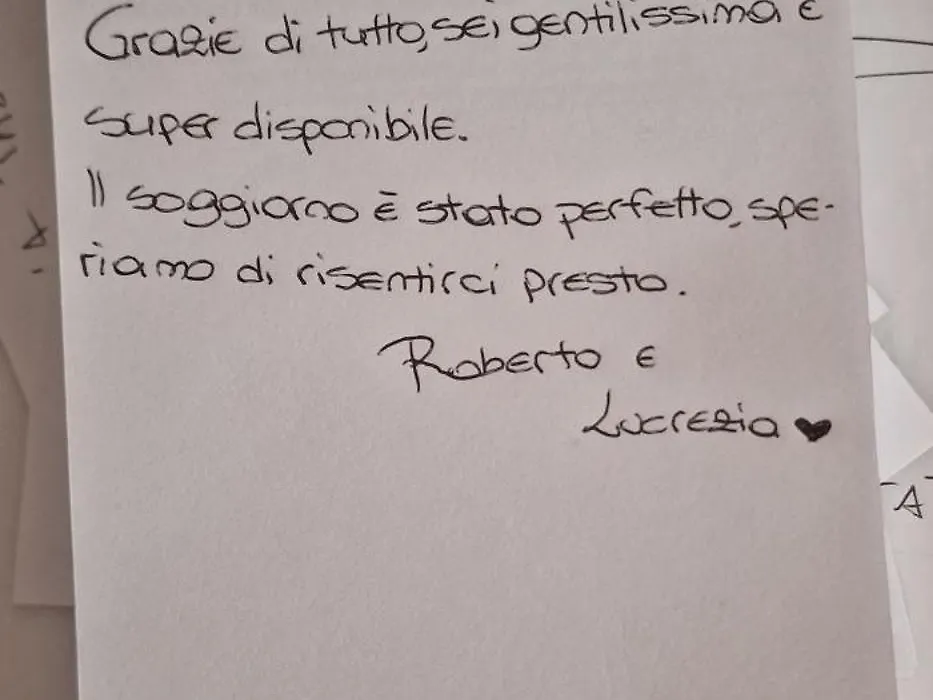 Grazie di tutto, sei gentilissima e
super disponibile.
Il soggiorno è stato perfetto, spe-
riamo di risentirci presto.
Roberto e
Lucrezia ♥
A